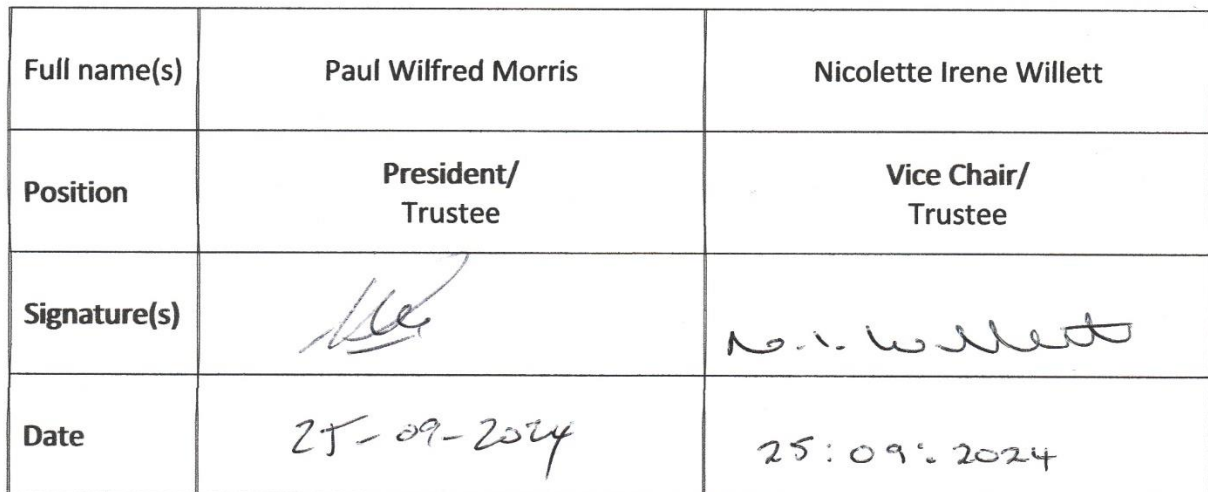 Full name(s) Paul Wilfred Morris Nicolette Irene Willett
Position President/ Vice Chair/
Trustee Trustee
Signature(s) N.I. Willett
Date 25-09-2024 25:09:2024